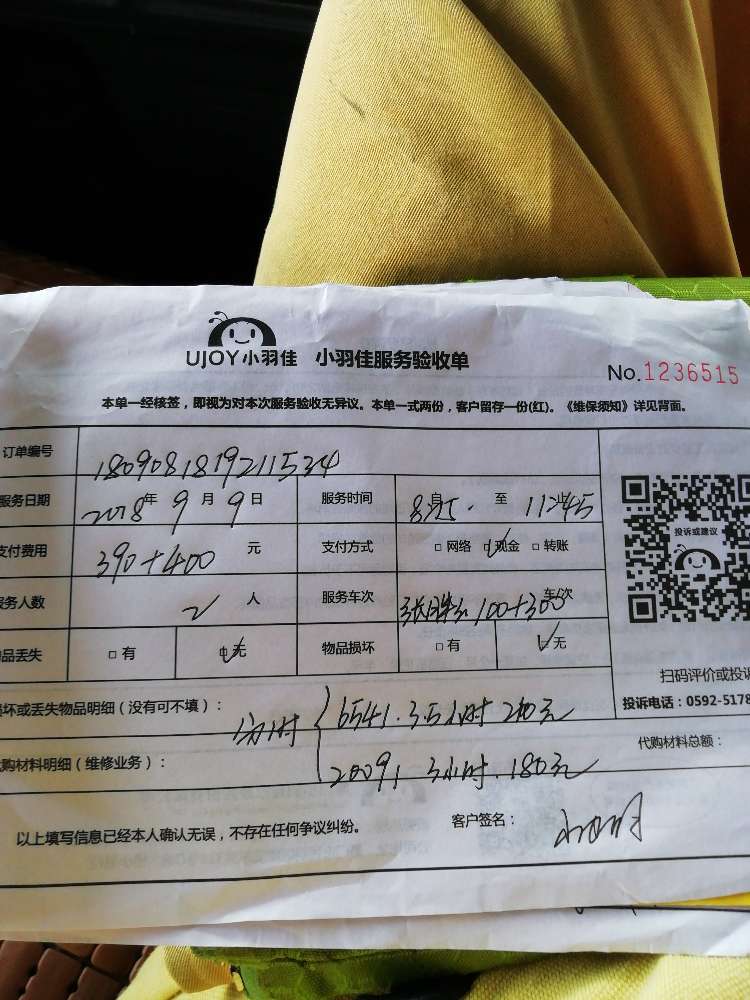 UJOY小羽佳 小羽佳服务验收单
No.1236515
本单一经核签，即视为对本次服务验收无异议。本单一式两份，客户留存一份(红)。《维保须知》详见背面。
订单编号 1809081819211534
服务日期 2018年9月9日 服务时间 至 11 45
支付费用 390+400 元 支付方式 □网络 □现金 □转账
服务人数 2 人 服务车次 100+300 车次
品丢失 □有 □无 物品损坏 □有 □无
投诉或建议
扫码评价或投诉
投诉电话：0592-5178
损坏或丢失物品明细（没有可不填）：
6541.3.5小时 210元
购材料明细（维修业务）：
20091 3小时.180元
代购材料总额：
以上填写信息已经本人确认无误，不存在任何争议纠纷。 客户签名：